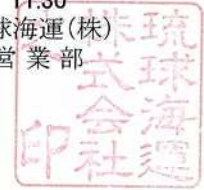 11.30
球海運(株)
営業部
琉球海運
株式会社
印